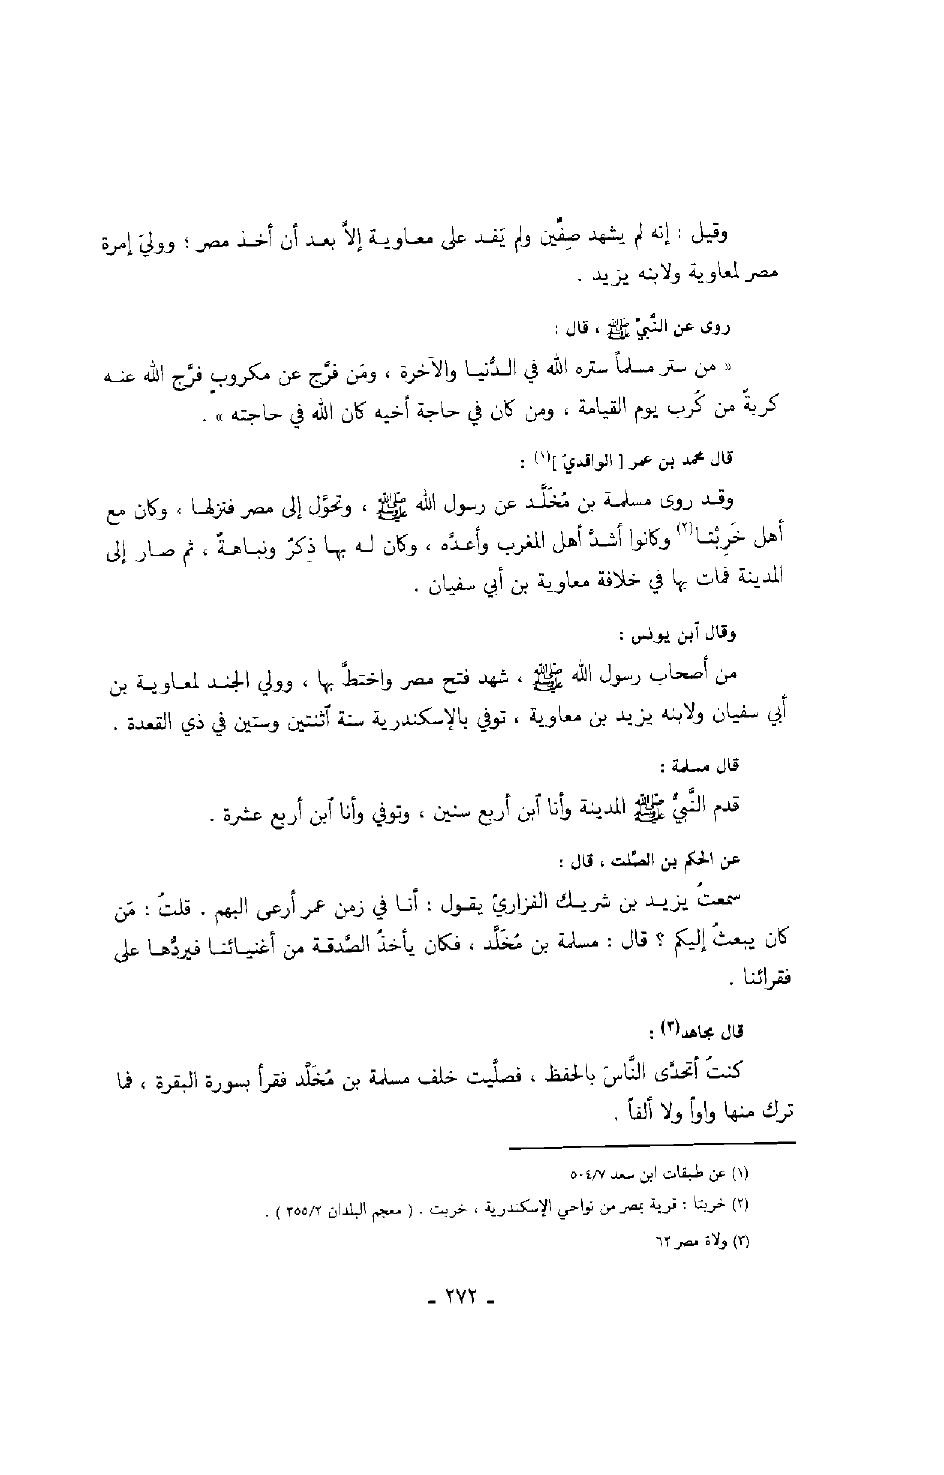 وقيل : إنه لم يشهد صِفِّين ولم يَفد على معاوية إلاَّ بعد أن أخذ مصر ؛ ووليَ إمرة
مصر لمعاوية ولابنه يزيد .
روى عن النَّبيّ ﷺ ، قال :
« من ستر مسلماً ستره الله في الدُّنيا والآخرة ، ومَن فرَّج عن مكروبٍ فرَّج الله عنه
كربةً من كُرب يوم القيامة ، ومن كان في حاجة أخيه كان الله في حاجته » .
قال محمد بن عمر [ الواقديّ ](١) :
وقد روى مسلمة بن مُخَلَّد عن رسول الله ﷺ ، وتحوَّل إلى مصر فنزلها ، وكان مع
أهل خَرِبْتا(٢) وكانوا أشدَّ أهل المغرب وأعدَّه ، وكان له بها ذِكرٌ ونباهةٌ ، ثم صار إلى
المدينة فمات بها في خلافة معاوية بن أبي سفيان .
وقال آبن يونس :
من أصحاب رسول الله ﷺ ، شهد فتح مصر واختطَّ بها ، وولي الجند لمعاوية بن
أبي سفيان ولابنه يزيد بن معاوية ، توفي بالإسكندرية سنة آثنتين وستين في ذي القعدة .
قال مسلمة :
قدم النَّبيُّ ﷺ المدينة وأنا آبن أربع سنين ، وتوفي وأنا آبن أربع عشرة .
عن الحكم بن الصَّلت ، قال :
سمعتُ يزيد بن شريك الفزاريّ يقول : أنا في زمن عمر أرعى البهم . قلتُ : مَن
كان يبعثُ إليكم ؟ قال : مسلمة بن مُخَلَّد ، فكان يأخذُ الصَّدقة من أغنيائنا فيردُّها على
فقرائنا .
قال مجاهد(٣) :
كنتُ أتحدَّى النَّاسَ بالحفظ ، فصلَّيت خلف مسلمة بن مُخَلَّد فقرأ بسورة البقرة ، فما
ترك منها واواً ولا ألفاً .
(١) عن طبقات ابن سعد ٥٠٤/٧
(٢) خربتا : قرية بمصر من نواحي الإسكندرية ، خربت . ( معجم البلدان ٣٥٥/٢ ) .
(٣) ولاة مصر ٦٢
ـ ٢٧٢ ـ